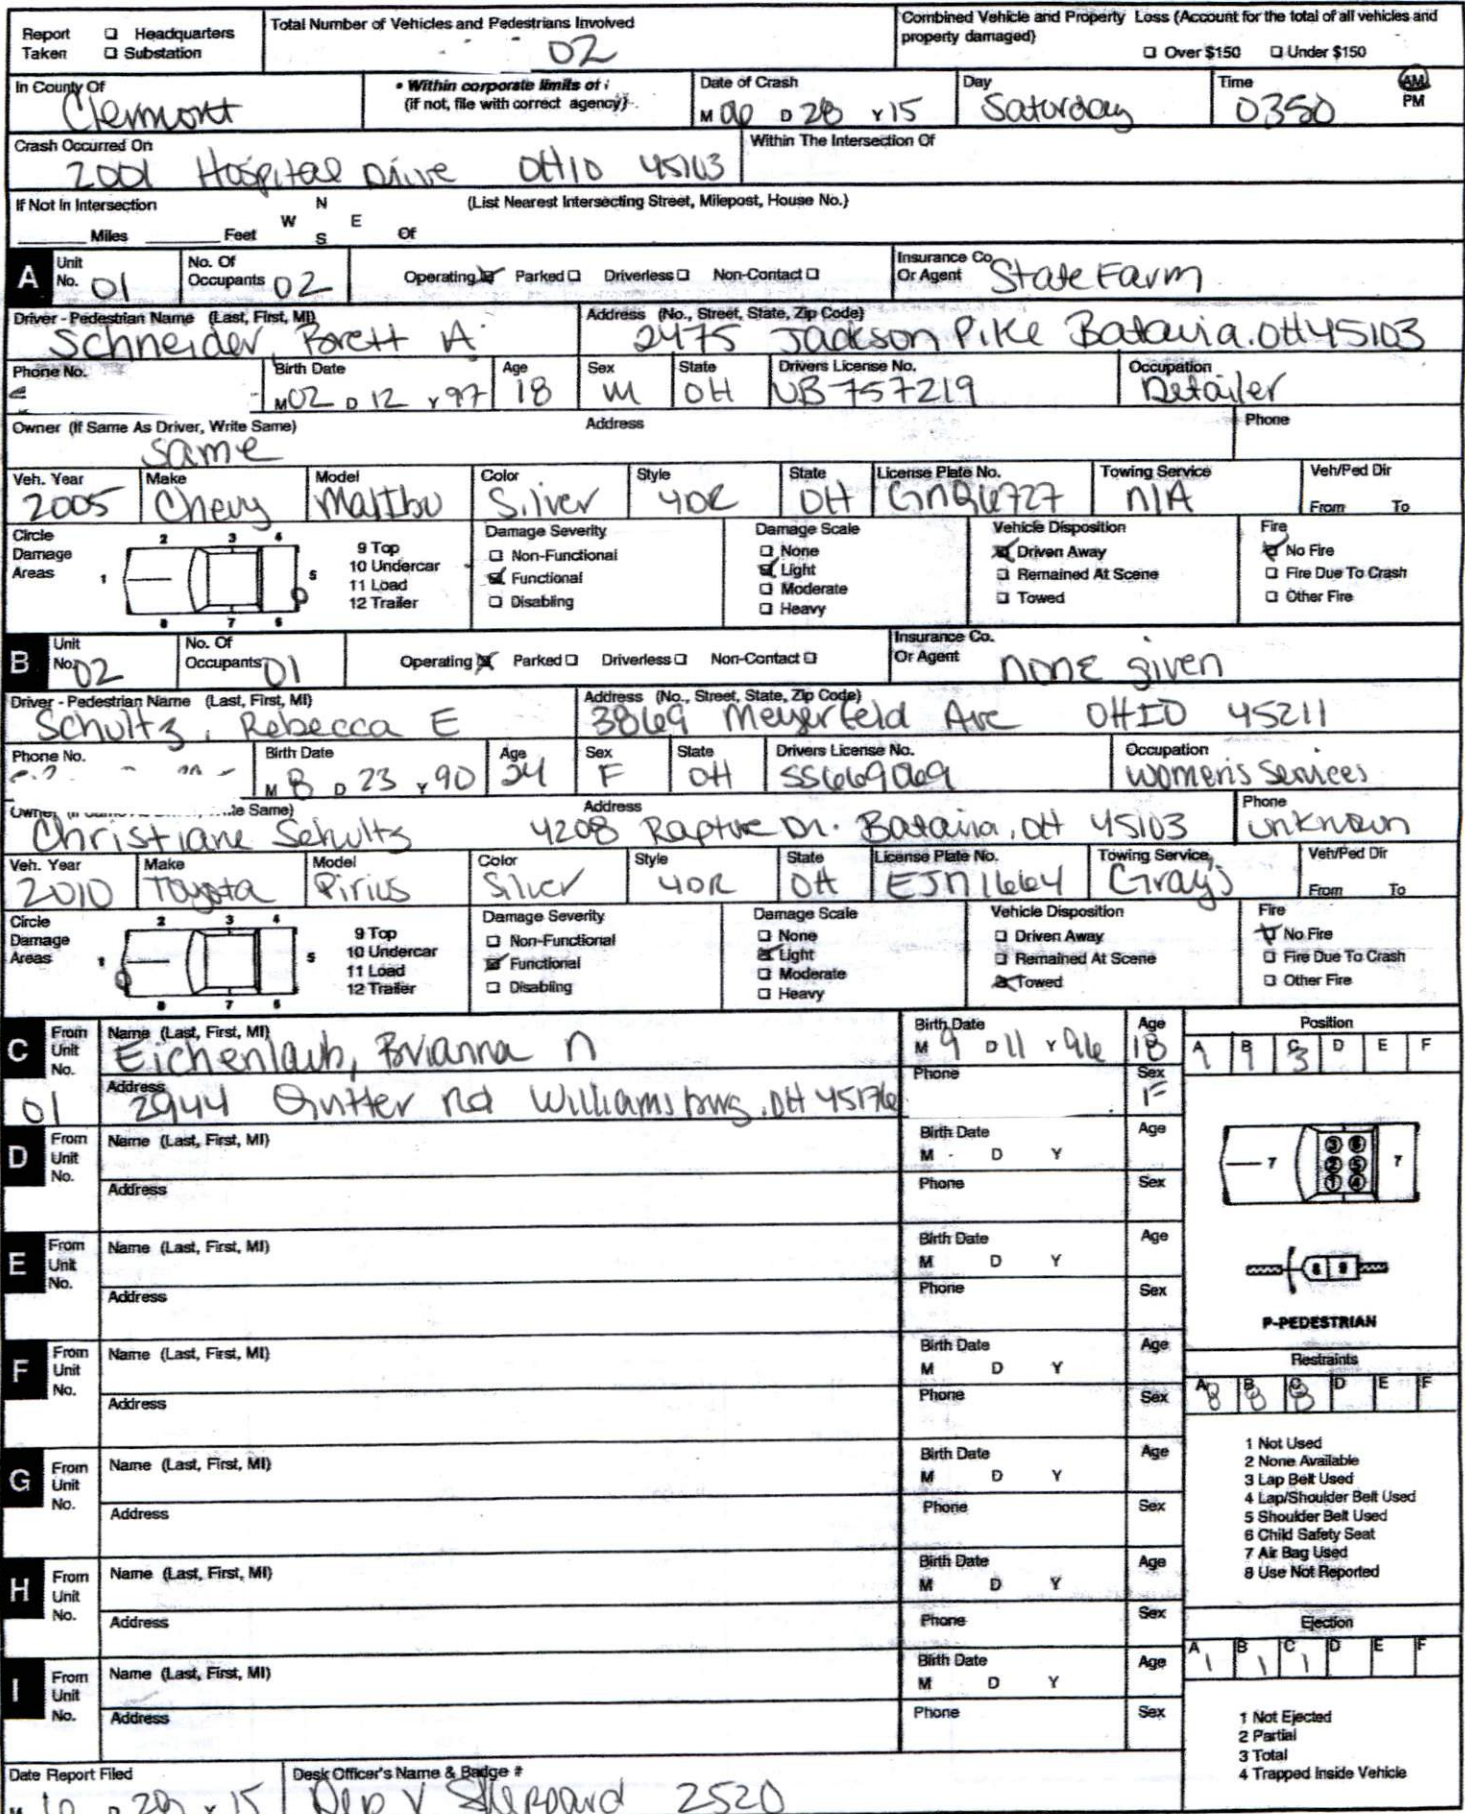 Report Taken ☐ Headquarters ☐ Substation
Total Number of Vehicles and Pedestrians Involved 02
Combined Vehicle and Property Loss (Account for the total of all vehicles and property damaged)
☐ Over $150 ☐ Under $150
In County Of Clermont
• Within corporate limits of :
(if not, file with correct agency)
Date of Crash M D 28 Y 15
Day Saturday
Time 0350 AM PM
Crash Occurred On 2001 Hospital Drive OHIO 45103
Within The Intersection Of
If Not In Intersection (List Nearest Intersecting Street, Milepost, House No.)
Miles Feet N W E S Of
A Unit No. 01 No. Of Occupants 02 Operating ☒ Parked ☐ Driverless ☐ Non-Contact ☐ Insurance Co. Or Agent State Farm
Driver - Pedestrian Name (Last, First, MI) Schneider, Brett A.
Address (No., Street, State, Zip Code) 2475 Jackson Pike Batavia, OH 45103
Phone No. Birth Date M 02 D 12 Y 97 Age 18 Sex M State OH Drivers License No. UB757219 Occupation Detailer
Owner (If Same As Driver, Write Same) same Address Phone
Veh. Year 2005 Make Chevy Model Malibu Color Silver Style 4DR State OH License Plate No. Towing Service N/A Veh/Ped Dir From To
Circle Damage Areas 1 2 3 4 5 6 7 8
9 Top
10 Undercar
11 Load
12 Trailer
Damage Severity ☐ Non-Functional ☒ Functional ☐ Disabling
Damage Scale ☐ None ☒ Light ☐ Moderate ☐ Heavy
Vehicle Disposition ☒ Driven Away ☐ Remained At Scene ☐ Towed
Fire ☒ No Fire ☐ Fire Due To Crash ☐ Other Fire
B Unit No. 02 No. Of Occupants 01 Operating ☒ Parked ☐ Driverless ☐ Non-Contact ☐ Insurance Co. Or Agent none given
Driver - Pedestrian Name (Last, First, MI) Schultz, Rebecca E
Address (No., Street, State, Zip Code) 3869 Meyerfeld Ave OHIO 45211
Phone No. Birth Date M 8 D 23 Y 90 Age 24 Sex F State OH Drivers License No. SS669069 Occupation women's services
Owner Same) Christiane Schultz Address 4208 Rapture Dr. Batavia, OH 45103 Phone unknown
Veh. Year 2010 Make Toyota Model Pirius Color Silver Style 4DR State OH License Plate No. EJN1664 Towing Service Gray's Veh/Ped Dir From To
Circle Damage Areas 1 2 3 4 5 6 7 8
9 Top
10 Undercar
11 Load
12 Trailer
Damage Severity ☐ Non-Functional ☒ Functional ☐ Disabling
Damage Scale ☐ None ☒ Light ☐ Moderate ☐ Heavy
Vehicle Disposition ☐ Driven Away ☐ Remained At Scene ☒ Towed
Fire ☒ No Fire ☐ Fire Due To Crash ☐ Other Fire
C From Unit No. 01 Name (Last, First, MI) Eichenlaub, Brianna N Birth Date M 9 D 11 Y 96 Age 18
Address 2944 Rd Williamsburg, OH 45176 Phone Sex F
Position A 1 B 1 C 3 D E F
D From Unit No. Name (Last, First, MI) Birth Date M D Y Age
Address Phone Sex
7 3 6 2 5 1 4 7
E From Unit No. Name (Last, First, MI) Birth Date M D Y Age
Address Phone Sex
8 9
P-PEDESTRIAN
F From Unit No. Name (Last, First, MI) Birth Date M D Y Age
Address Phone Sex
Restraints A 8 B 8 C 8 D E F
G From Unit No. Name (Last, First, MI) Birth Date M D Y Age
Address Phone Sex
1 Not Used
2 None Available
3 Lap Belt Used
4 Lap/Shoulder Belt Used
5 Shoulder Belt Used
6 Child Safety Seat
7 Air Bag Used
8 Use Not Reported
H From Unit No. Name (Last, First, MI) Birth Date M D Y Age
Address Phone Sex
Ejection A 1 B 1 C 1 D E F
I From Unit No. Name (Last, First, MI) Birth Date M D Y Age
Address Phone Sex
1 Not Ejected
2 Partial
3 Total
4 Trapped Inside Vehicle
Date Report Filed M D Y 15
Desk Officer's Name & Badge # Dep V Sheppard 2520